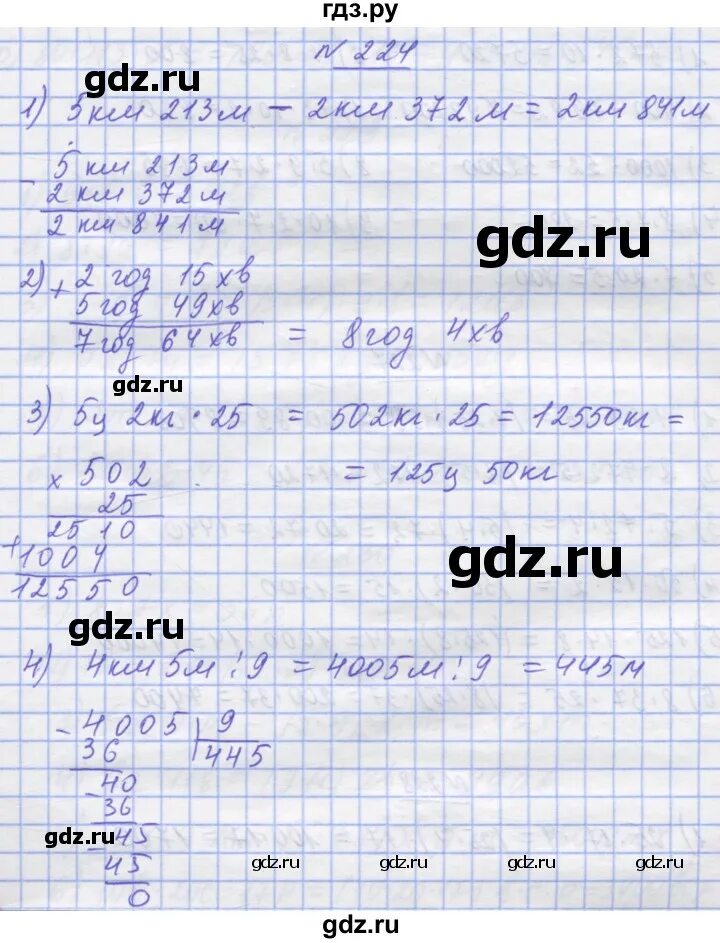 гдз.ру
N 224
gdz.ru
1) 5км 213м – 2км 372м = 2км 841м
- 5 км 213м
2 км 372 м
2 км 841 м
gdz.ru
2) + 2 год 15 хв
5 год 49хв
7 год 64 хв = 8 год 4 хв
gdz.ru
3) 5ц 2кг · 25 = 502кг · 25 = 12550кг =
= 125ц 50кг
x 502
25
2510
+ 1004
12550
gdz.ru
gdz.ru
4) 4км 5м : 9 = 4005м : 9 = 445м
- 4005 | 9
36 | 445
- 40
36
- 45
45
0
gdz.ru
gdz.ru
gdz.ru
gdz.ru
gdz.ru